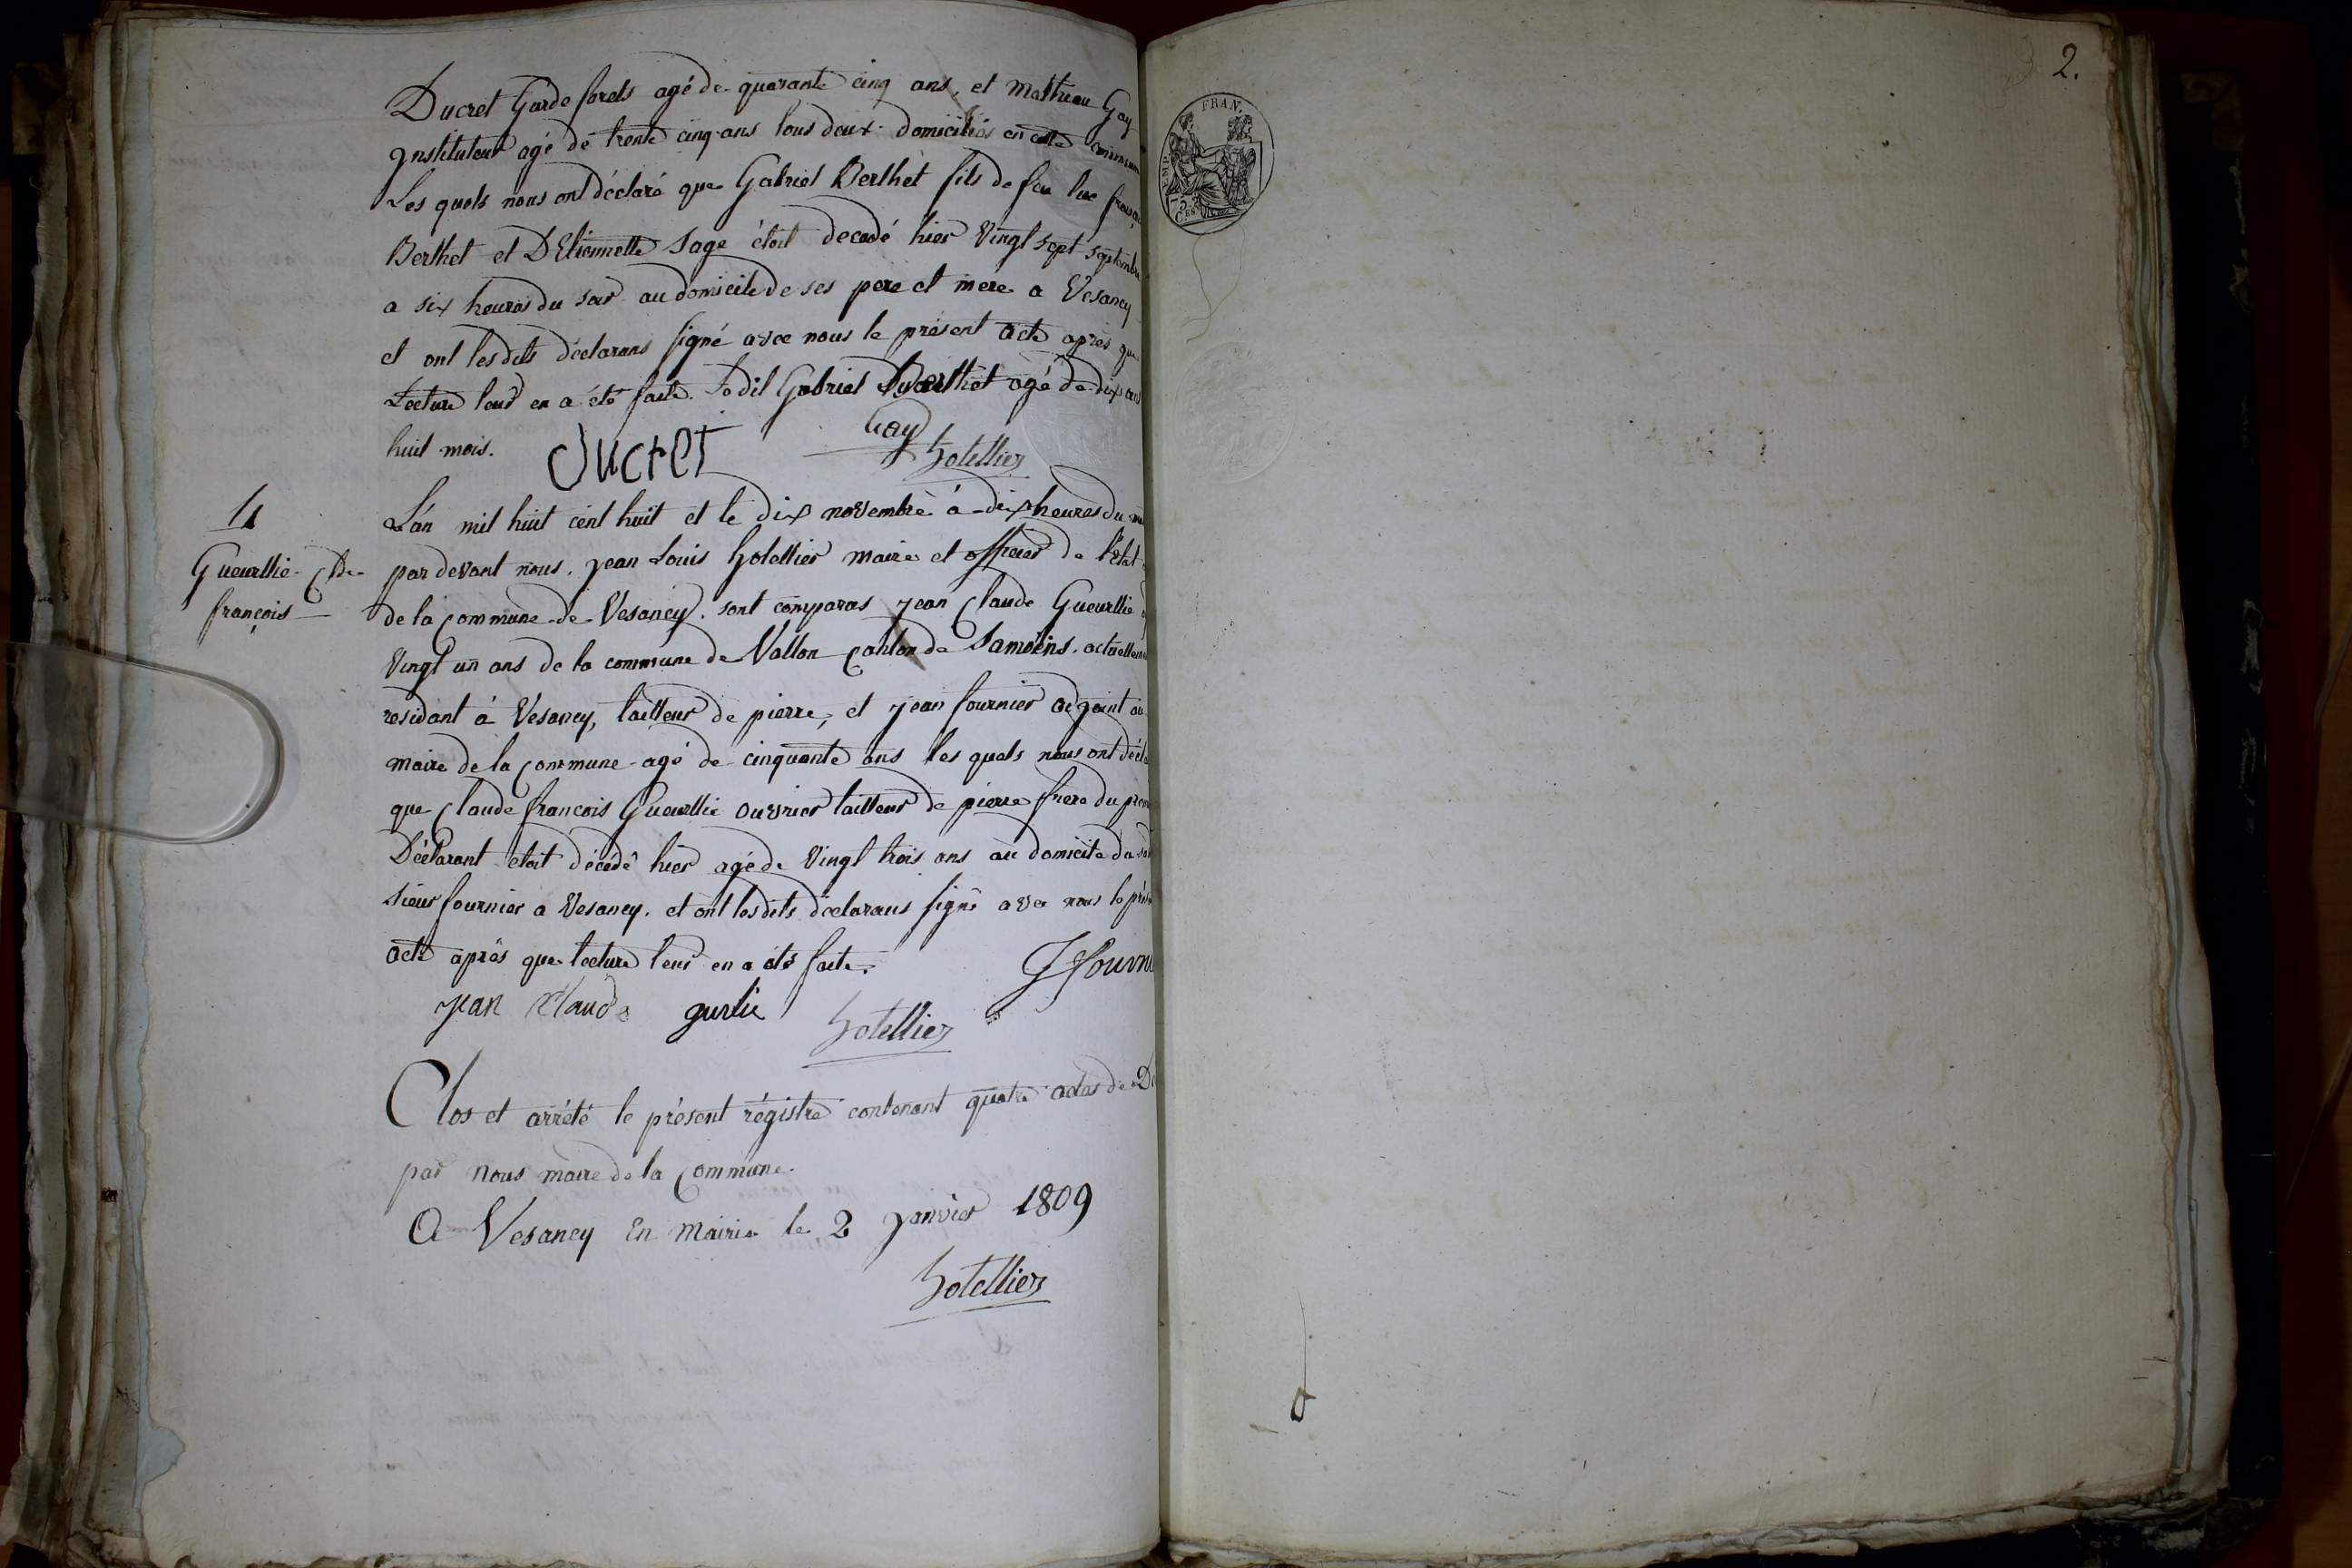 2.
FRAN.
Ducret Garde forets agé de quarante cinq ans, et Mathieu Gay
Instituteur agé de trente cinq ans tous deux domiciliés en cette commune
Les quels nous ont déclaré que Gabriel Berthet fils de feu luc françois
Berthet et D'Etiennette Sage étoit decedé hier Vingt sept septembre
a six heures du soir au domicile de ses pere et mere a Vesancy
et ont les dits déclarans signé avec nous le présent acte après que
Lecture leur en a été faite. Le dit Gabriel Berthet agé de dix ans
huit mois.
Ducret
Gay
hotellier
4
Gueurllie Cde
françois
L'án mil huit cent huit et le dix novembre á dix heures du
par devant nous. jean Louis hotellier maire et officier de l'Etat
de la Commune de Vesancy. sont comparus jean Claude Gueurllie
Vingt un ans de la commune de Vallon Canton de Samoëns. actuellement
residant á Vesancy, tailleur de pierre, et jean fournier adjoint au
maire de la Commune agé de cinquante ans les quels nous ont décla
que Claude françois Gueurllie ouvrier tailleur de pierre frere du prem
Déclarant etoit décédé hier agé de Vingt trois ans au domicile du
sieur fournier a Vesancy. et ont les dits déclarans signé avec nous le prés
acte aprés que lecture leur en a été faite.
J fourni
jean Claude gurlie
hotellier
Clos et arrété le présent régistre contenant quatre actes de Dé
par nous maire de la Commune.
A Vesancy En Mairie le 2 janvier 1809
hotellier